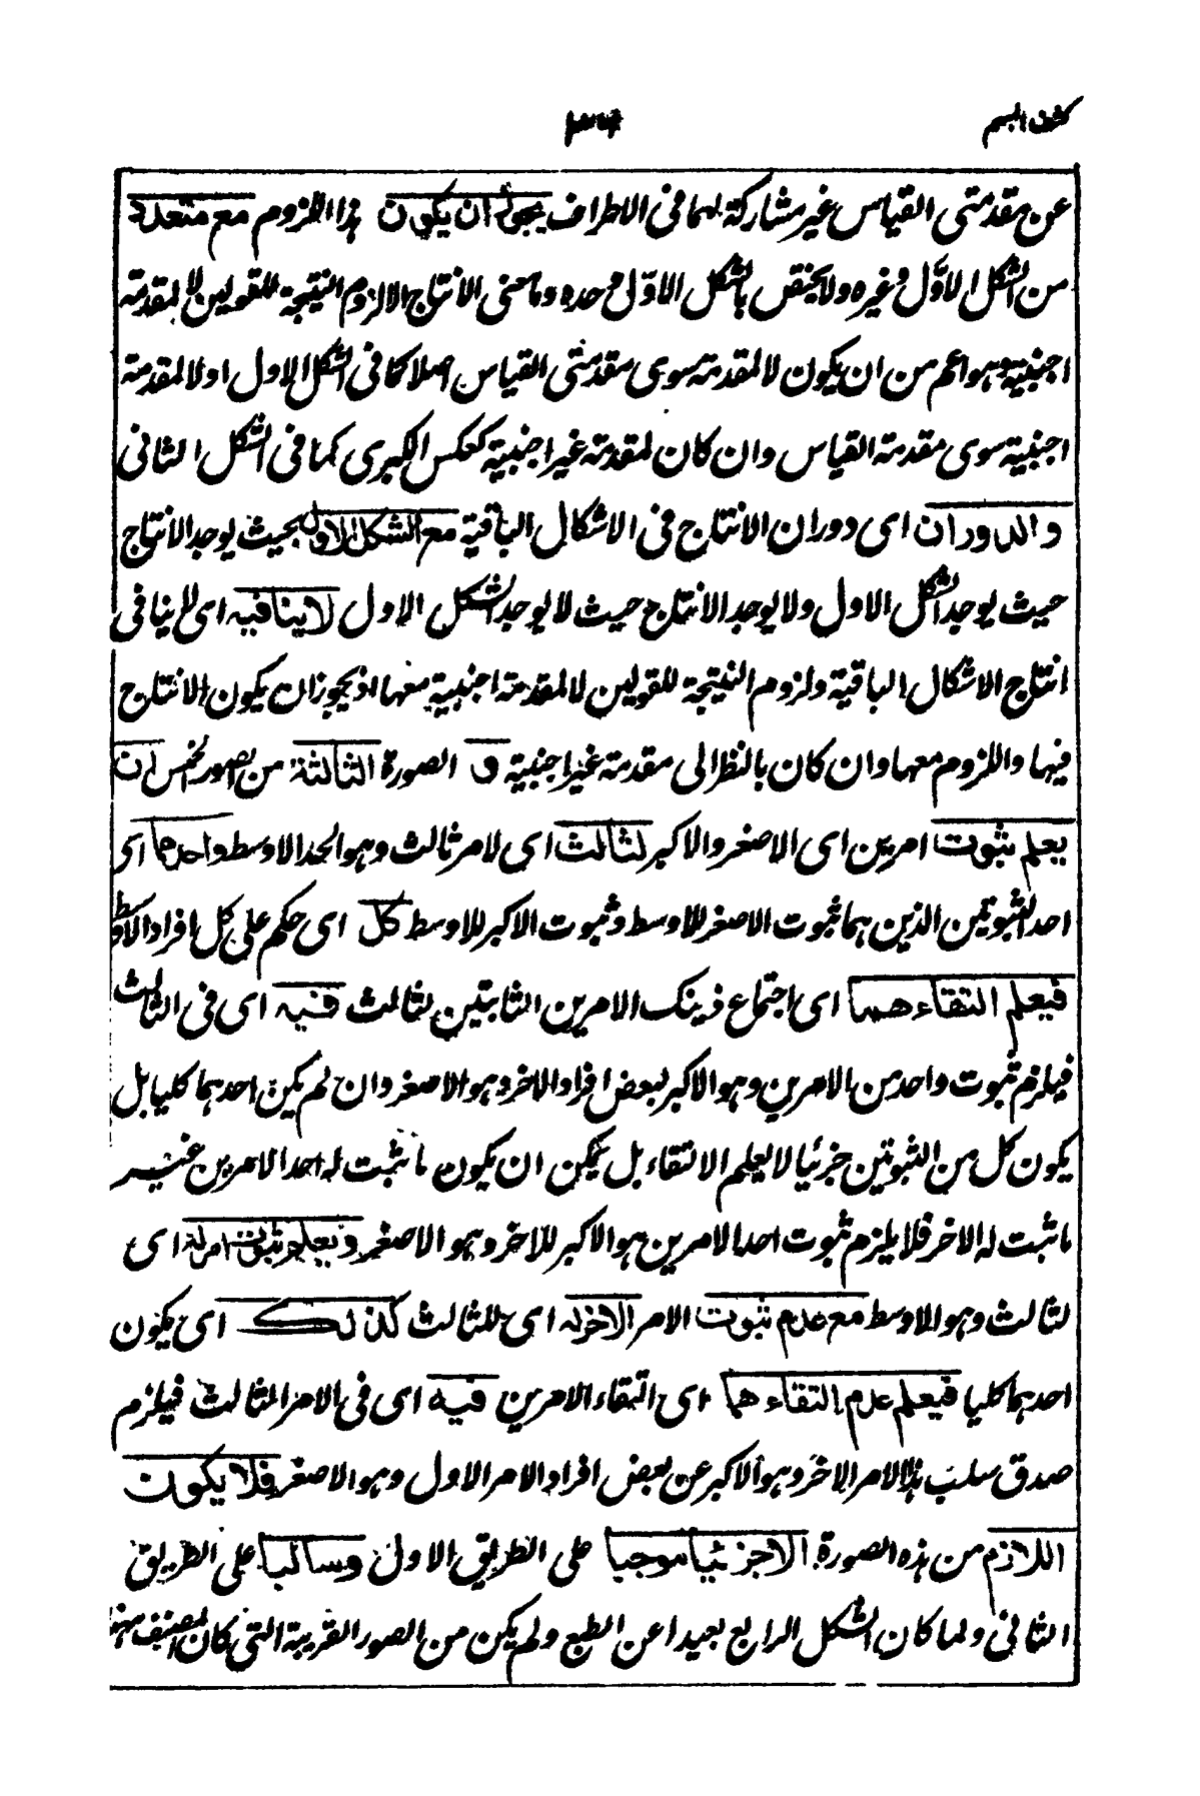 كشف المبهم
عن مقدمتى القياس غير مشاركة لهما فى الاطراف يجوز ان يكون هذا اللزوم مع متعدد
من الشكل الاول وغيره ولا يختص بالشكل الاول وحده وما معنى الانتاج الا لزوم النتيجة للقولين لا لمقدمة
اجنبية وهو اعم من ان يكون لا لمقدمة سوى مقدمتى القياس اصلا كما فى الشكل الاول او لا لمقدمة
اجنبية سوى مقدمة القياس وان كان لمقدمة غير اجنبية كعكس الكبرى كما فى الشكل الثانى
والدوران اى دوران الانتاج فى الاشكال الباقية مع الشكل الاول بحيث يوجد الانتاج
حيث يوجد الشكل الاول ولا يوجد الانتاج حيث لا يوجد الشكل الاول لا ينافيه اى لا ينافى
انتاج الاشكال الباقية ولزوم النتيجة للقولين لا لمقدمة اجنبية معها اذ يجوز ان يكون الانتاج
فيها واللزوم معها وان كان بالنظر الى مقدمة غير اجنبية و الصورة الثالثة من الصور الخمس ان
يعلم ثبوت امرين اى الاصغر والاكبر لثالث اى لامر ثالث وهو الحد الاوسط واحدهما اى
احد الثبوتين الذين هما ثبوت الاصغر للاوسط وثبوت الاكبر للاوسط كل اى حكم على كل افراد الاوسط
فيعلم التقاءهما اى اجتماع ذينك الامرين الثابتين لثالث فيه اى فى الثالث
فيلزم ثبوت واحد من الامرين وهو الاكبر لبعض افراد الاخر وهو الاصغر وان لم يكن احدهما كليا بل
يكون كل من الثبوتين جزئيا لا يعلم الالتقاء بل يمكن ان يكون ما ثبت له احد الامرين غير
ما ثبت له الاخر فلا يلزم ثبوت احد الامرين هو الاكبر للاخر وهو الاصغر ويعلم ثبوت امر له اى
لثالث وهو الاوسط مع عدم ثبوت الامر الاخر له اى للثالث كذلك اى يكون
احدهما كليا فيعلم عدم التقاءهما اى التقاء الامرين فيه اى فى الامر الثالث فيلزم
صدق سلب هذا الامر الاخر وهو الاكبر عن بعض افراد الامر الاول وهو الاصغر فلا يكون
اللازم من هذه الصورة الا جزئيا موجبا على الطريق الاول وسالبا على الطريق
الثانى ولما كان الشكل الرابع بعيدا عن الطبع ولم يكن من الصور القريبة التى كان المصنف